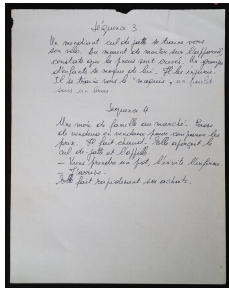 Séquence 3
Un mendiant cul de jatte se traine vers
son vélo. Au moment de monter sur l'appareil,
constate que les pneus sont crevés. Un groupe
d'enfants se moque de lui. Il les injurie.
Il se traine vers le "maquis",
sous un
Séquence 4
Une mère de famille au marché. Passe
de vendeuse en vendeuse pour comparer les
prix. Il fait chaud. Elle aperçoit le
cul-de-jatte et l'appelle.
- Viens prendre un pot, l'invite l'infirme.
- J'arrive.
Elle fait rapidement ses achats.